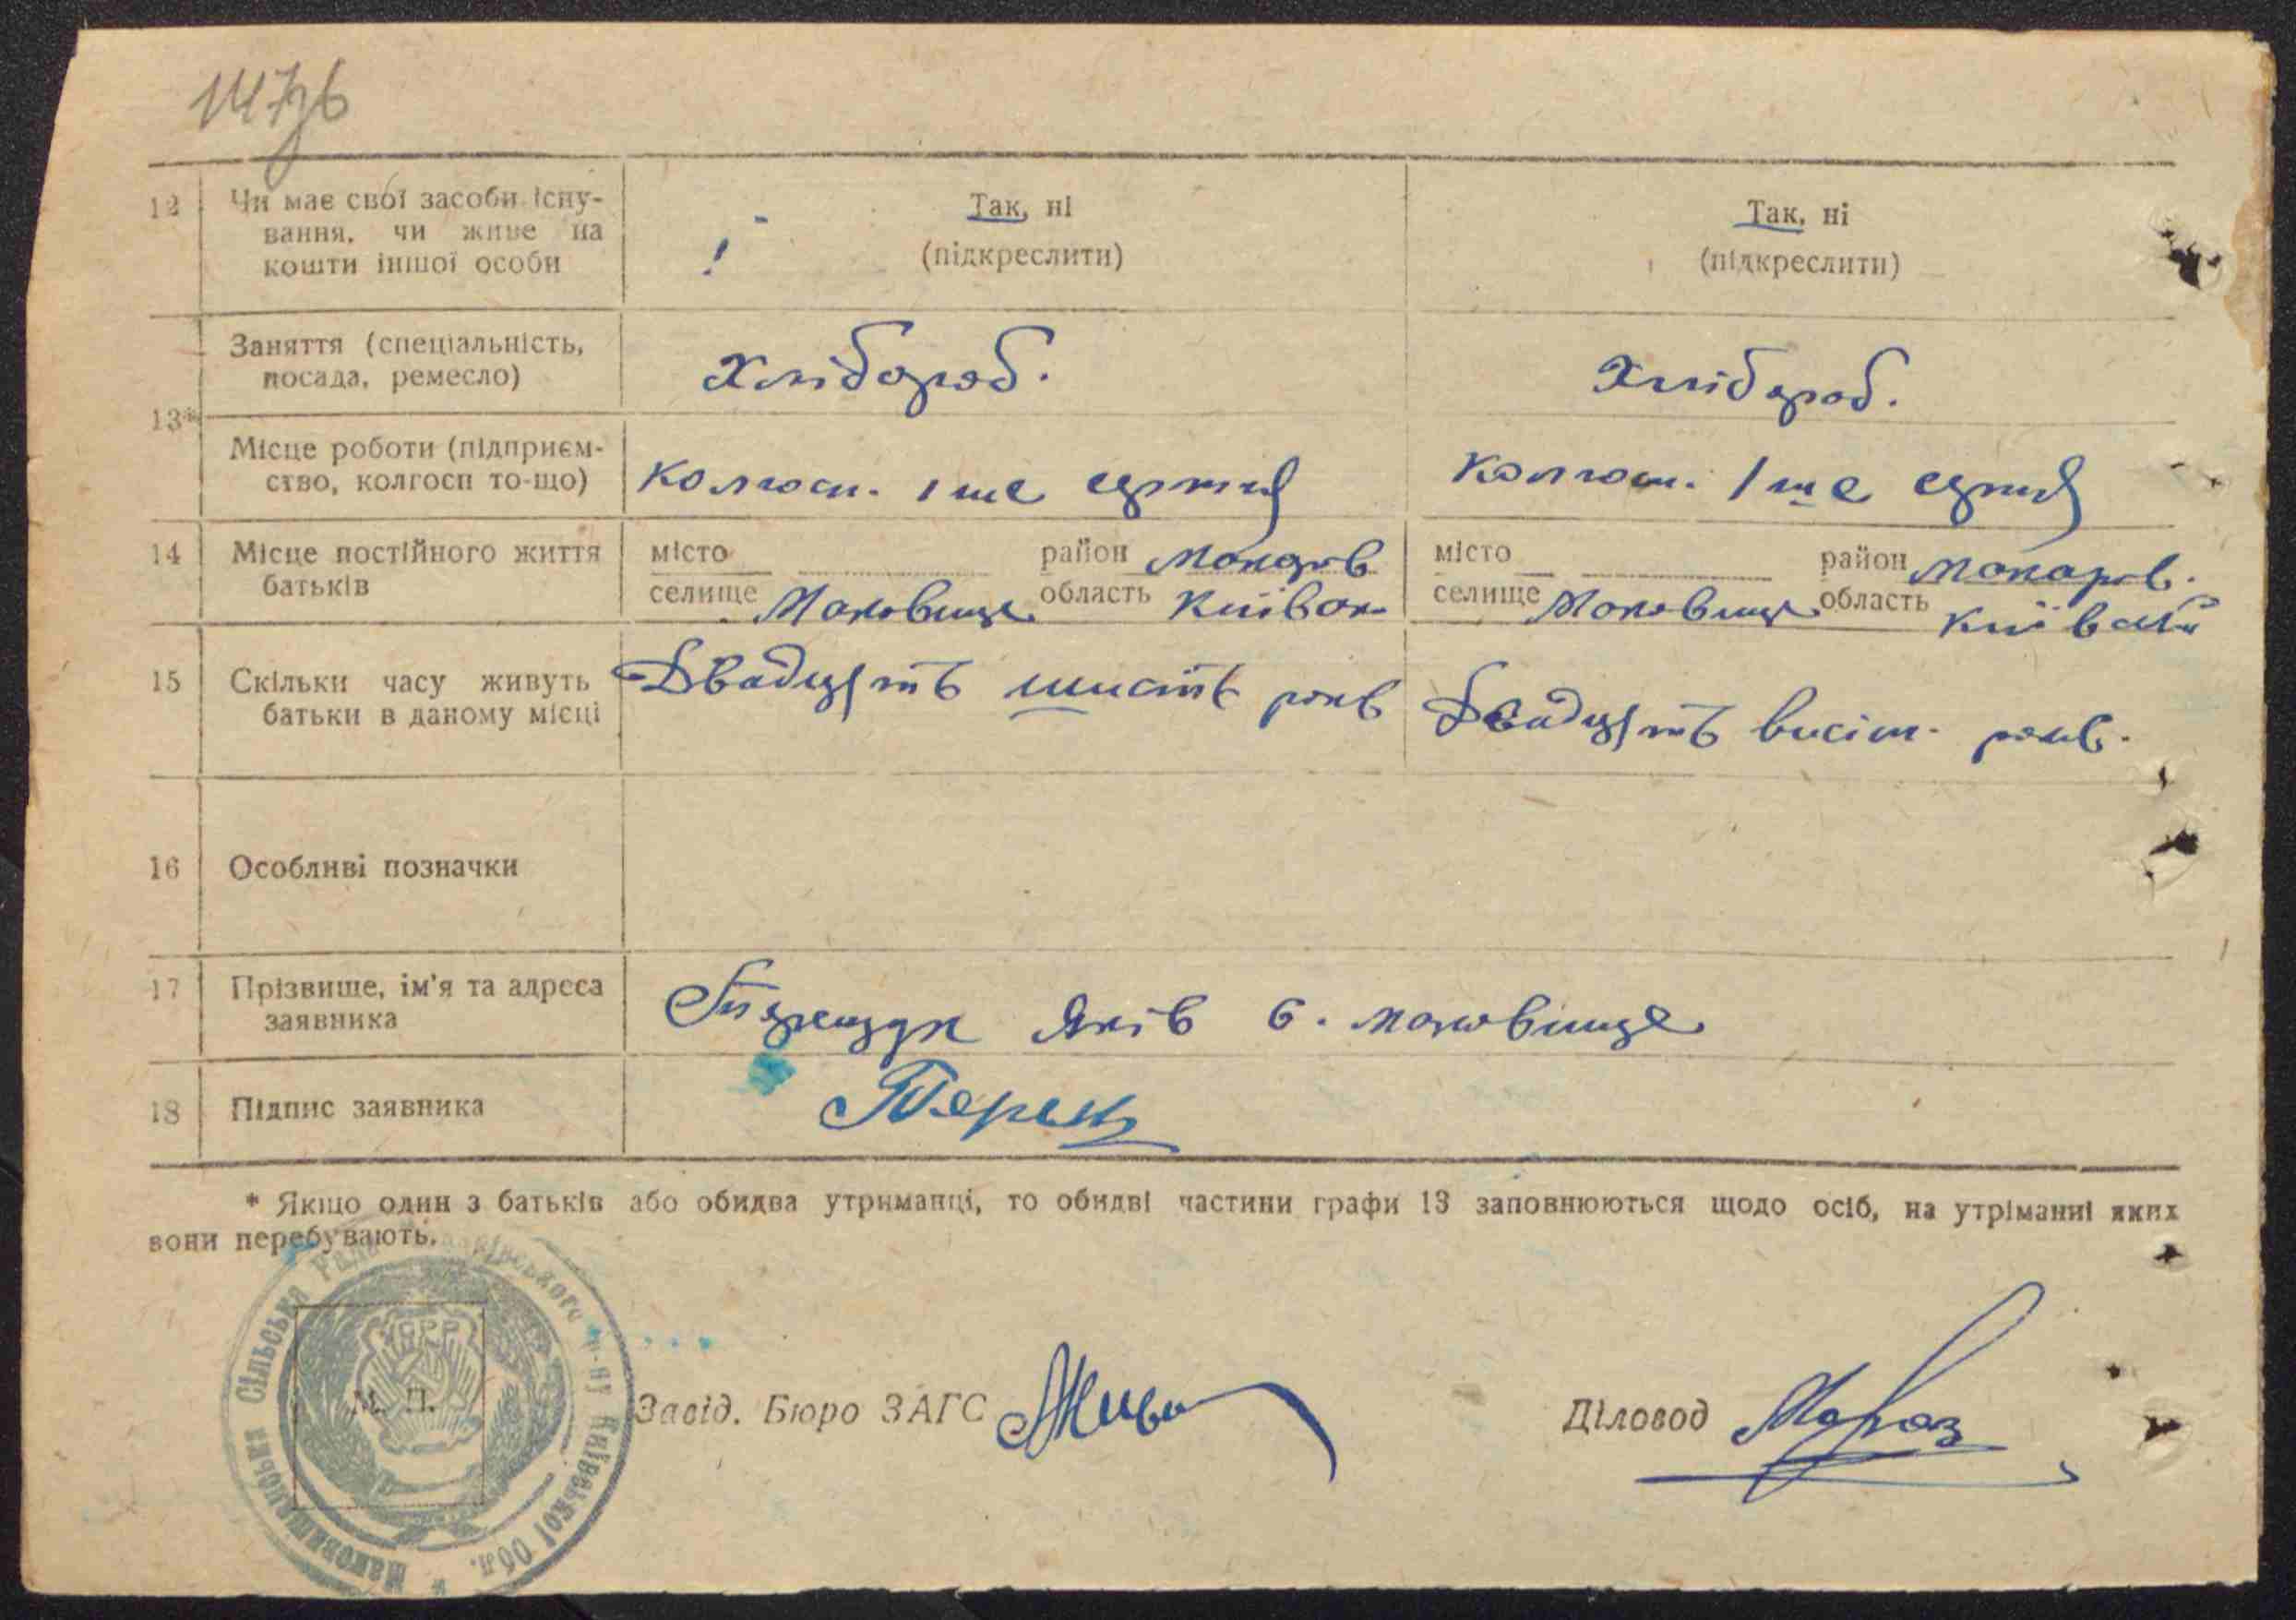 12 Чи має свої засоби існу- Так, ні Так, ні
вання, чи живе на (підкреслити) (підкреслити)
кошти іншої особи
Заняття (спеціальність, Хлібороб. Хлібороб.
посада, ремесло)
13*
Місце роботи (підприєм- колгосп. 1 ше серпня колгосп. 1 ше серпня
ство, колгосп то-що)
14 Місце постійного життя місто район Макарів місто район Макарів.
батьків селище Маковище область Київськ селище Маковище область Київськ
15 Скільки часу живуть Двадцять шисть років Двадцять висім. років.
батьки в даному місці
16 Особливі позначки
17 Прізвище, ім'я та адреса Яків с. Маковище
заявника
18 Підпис заявника
* Якщо один з батьків або обидва утриманці, то обидві частини графи 13 заповнюються щодо осіб, на утріманні яких
вони перебувають.
Маковищанська Сільська Рада Макарівського р-ну Київської Обл.
М. П.
Завід. Бюро ЗАГС
Діловод Мороз